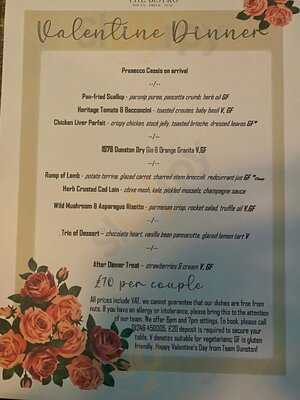 THE BISTRO
Valentine Dinner
Prosecco Cassis on arrival
--/--
Pan-fried Scallop - parsnip puree, pancetta crumb, herb oil GF
Heritage Tomato & Bocconcini - toasted croutes, baby basil V, GF
Chicken Liver Parfait - crispy chicken, stock jelly, toasted brioche, dressed leaves GF*
--/--
1978 Dunston Dry Gin & Orange Granita V,GF
--/--
Rump of Lamb - potato terrine, glazed carrot, charred stem broccoli, redcurrant jus GF
Herb Crusted Cod Loin - olive mash, kale, pickled mussels, champagne sauce
Wild Mushroom & Asparagus Risotto - parmesan crisp, rocket salad, truffle oil V,GF
--/--
Trio of Dessert - chocolate heart, vanilla bean pannacotta, glazed lemon tart V
--/--
After Dinner Treat - strawberries & cream V, GF
per couple
All prices include VAT, we cannot guarantee that our dishes are free from
nuts. If you have an allergy or intolerance, please bring this to the attention
of our team. We offer 5pm and 7pm settings. To book, please call
01246 £20 deposit is required to secure your
table. V denotes suitable for vegetarians; GF is gluten
friendly. Happy Valentine's Day from Team Dunston!